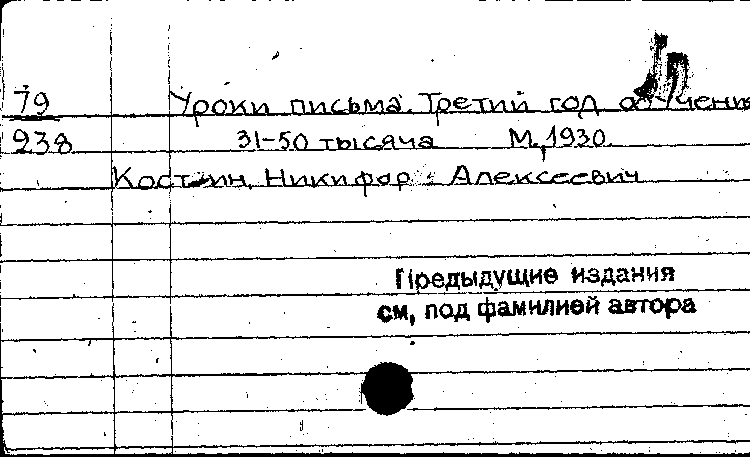 79 Уроки письма. Третий год обучения
238 31-50 тысяча М., 1930.
Костин, Никифор Алексеевич
Предыдущие издания
см, под фамилией автора